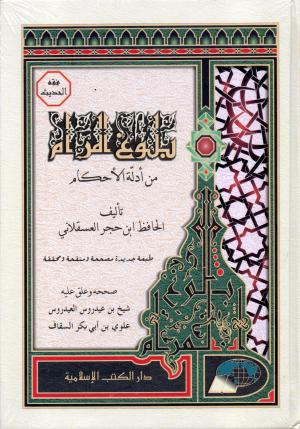 فقه
الحديث
بلوغ المرام
من أدلة الأحكام
تأليف
الحافظ ابن حجر العسقلاني
طبعة جديدة مصححة ومنقحة ومحققة
صححه وعلق عليه
شيخ بن عيدروس العيدروس
علوي بن أبي بكر السقاف
بلوغ
المرام
دار الكتب الإسلامية